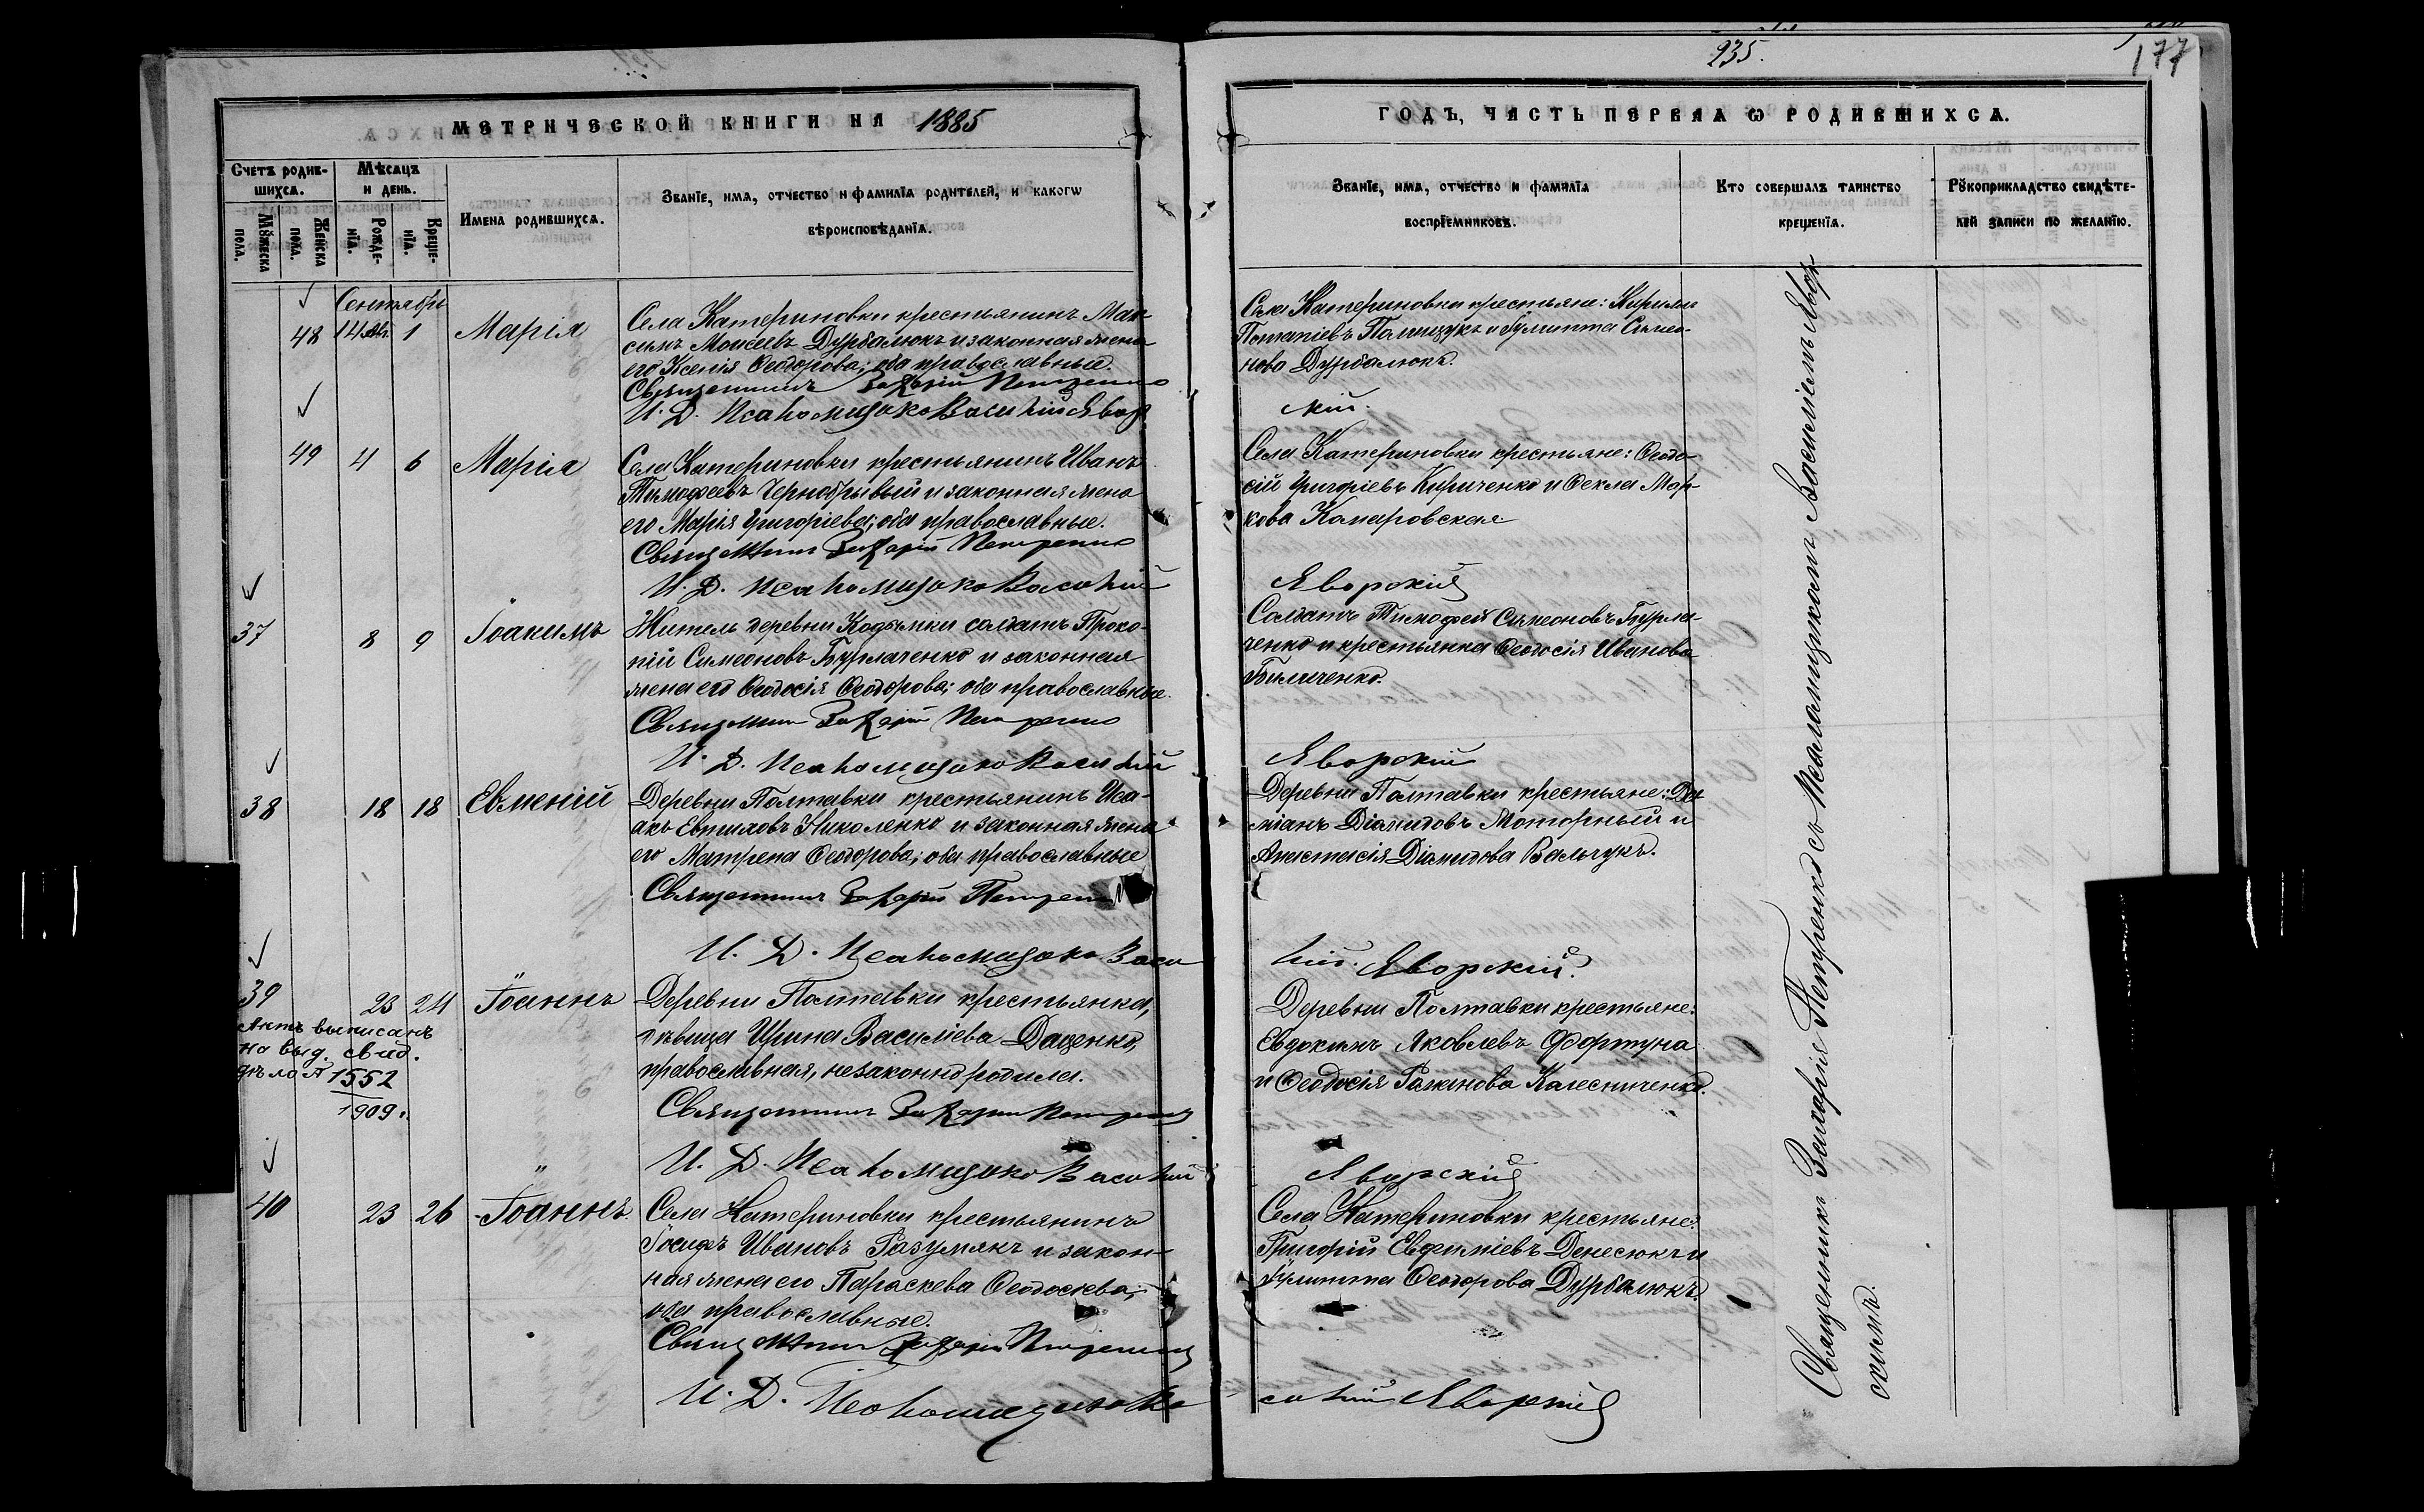 235.
177
МЕТРИЧЕСКОЙ КНИГИ НА 1885
ГОДЪ, ЧАСТЬ ПЕРВАЯ Ѡ РОДИВШИХСЯ.
Счетъ родив-
шихся.
Мꙋжеска
пола.
Женска
пола.
Мѣсяцъ
и день.
Рожде-
нїя.
Креще-
нїя.
Имена родившихся.
Званїе, имя, отчество и фамилїя родителей, и какогѡ
вѣроисповѣданїя.
Званїе, имя, отчество и фамилїя
воспрїемниковъ.
Кто совершалъ таинство
крещенїя.
Рꙋкоприкладство свидѣте-
лей записи по желанїю.
Сентябрь
48 14 Авг. 1 Марія
Села Катериновки крестьянинъ Мак-
симъ Моисеевъ Дурбалюкъ и законная жена
его Ксенія Ѳеодорова; оба православные.
Священникъ Захарій Петренко
И. Д. Псаломщика Василій Явор
Села Катериновки крестьяне: Кириллъ
Потапіевъ Полищукъ и Іулитта Симео-
нова Дурбалюкъ.
скій.
49 4 6 Марія
Села Катериновки крестьянинъ Иванъ
Тимофеевъ Чернобрывый и законная жена
его Марія Григоріева; оба православные.
Священникъ Захарій Петренко
И. Д. Псаломщика Василій
Села Катериновки крестьяне: Ѳеодо-
сій Григоріевъ Кириченко и Ѳекла Мар-
кова Комаровская
Яворскій
37 8 9 Іоакимъ
Житель деревни Кодымки солдатъ Проко-
пій Симеоновъ Бурлаченко и законная
жена его Ѳеодосія Ѳеодорова; оба православные.
Священникъ Захарій Петренко
И. Д. Псаломщика Василій
Солдатъ Тимофей Симеоновъ Бурла-
ченко и крестьянка Ѳеодосія Иванова
Биличенко.
Яворскій
38 18 18 Евменій
Деревни Полтавки крестьянинъ Иса-
акъ Евтиховъ Николенко и законная жена
его Матрена Ѳеодорова; оба православные
Священникъ Захарій Петренко
И. Д. Псаломщика Васи
Деревни Полтавки крестьяне: Да-
міанъ Діомидовъ Моторный и
Анастасія Діомидова Вальчукъ.
лій. Яворскій.
39 23 24 Іоаннъ
Актъ выписанъ
на выд. свид.
дѣло № 1552
1909 г.
Деревни Полтавки крестьянка,
дѣвица Ирина Василіева Даценко,
православная, незаконно родила.
Священникъ Захарій Петренко
И. Д. Псаломщика Василій
Деревни Полтавки крестьяне:
Евдокимъ Яковлевъ Фортуна
и Ѳеодосія Романова Калесниченко.
Яворскій
40 23 26 Іоаннъ.
Села Катериновки крестьянинъ
Іосифъ Ивановъ Разумякъ и закон-
ная жена его Параскева Ѳеодосіева;
оба православные.
Священникъ Захарій Петренко
И. Д. Псаломщика Ва
Села Катериновки крестьяне:
Григорій Евфиміевъ Денесюкъ и
Іулитта Ѳеодорова Дурбалюкъ.
силій Яворскій
Священникъ Захарія Петренко съ Псаломщикомъ Василіемъ Явор
скимъ.